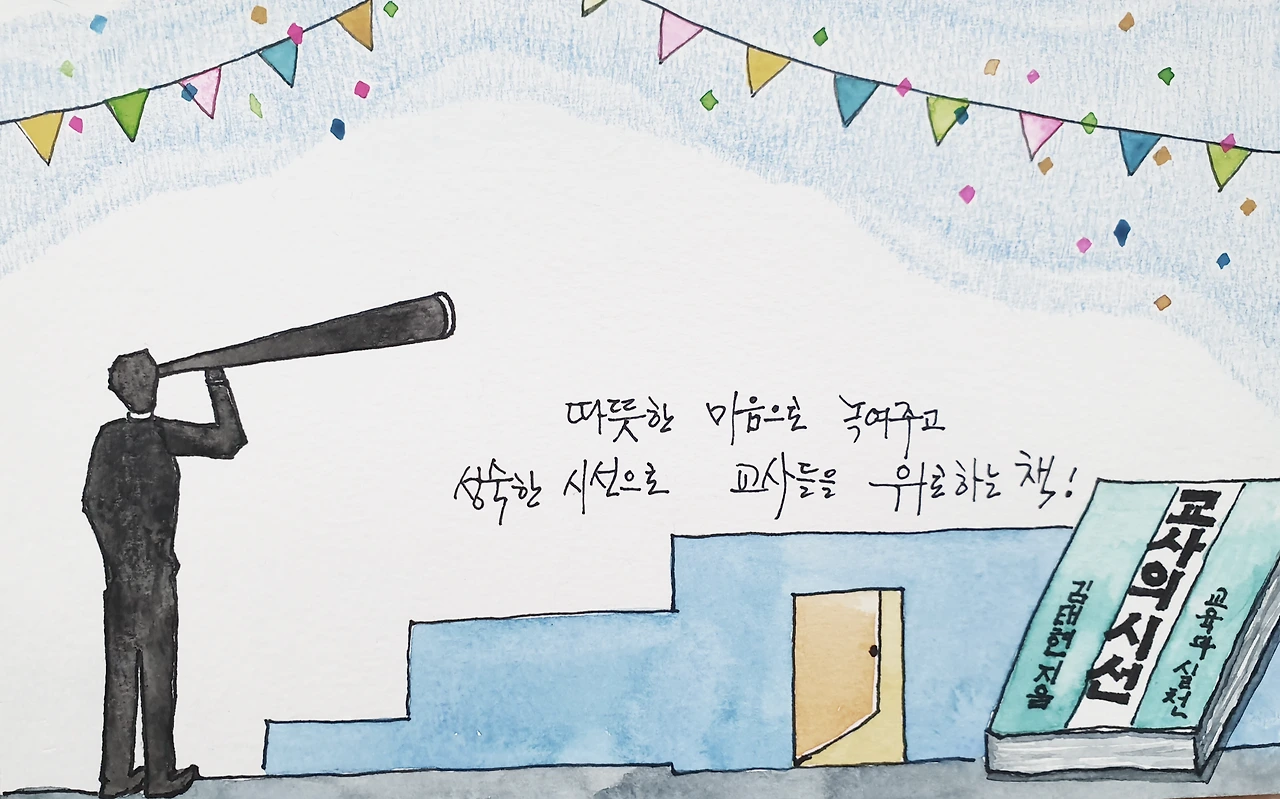 따뜻한 마음으로 녹여주고
성숙한 시선으로 교사들을 위로하는 책!
교사의 시선
김태현 지음
교육과 실천